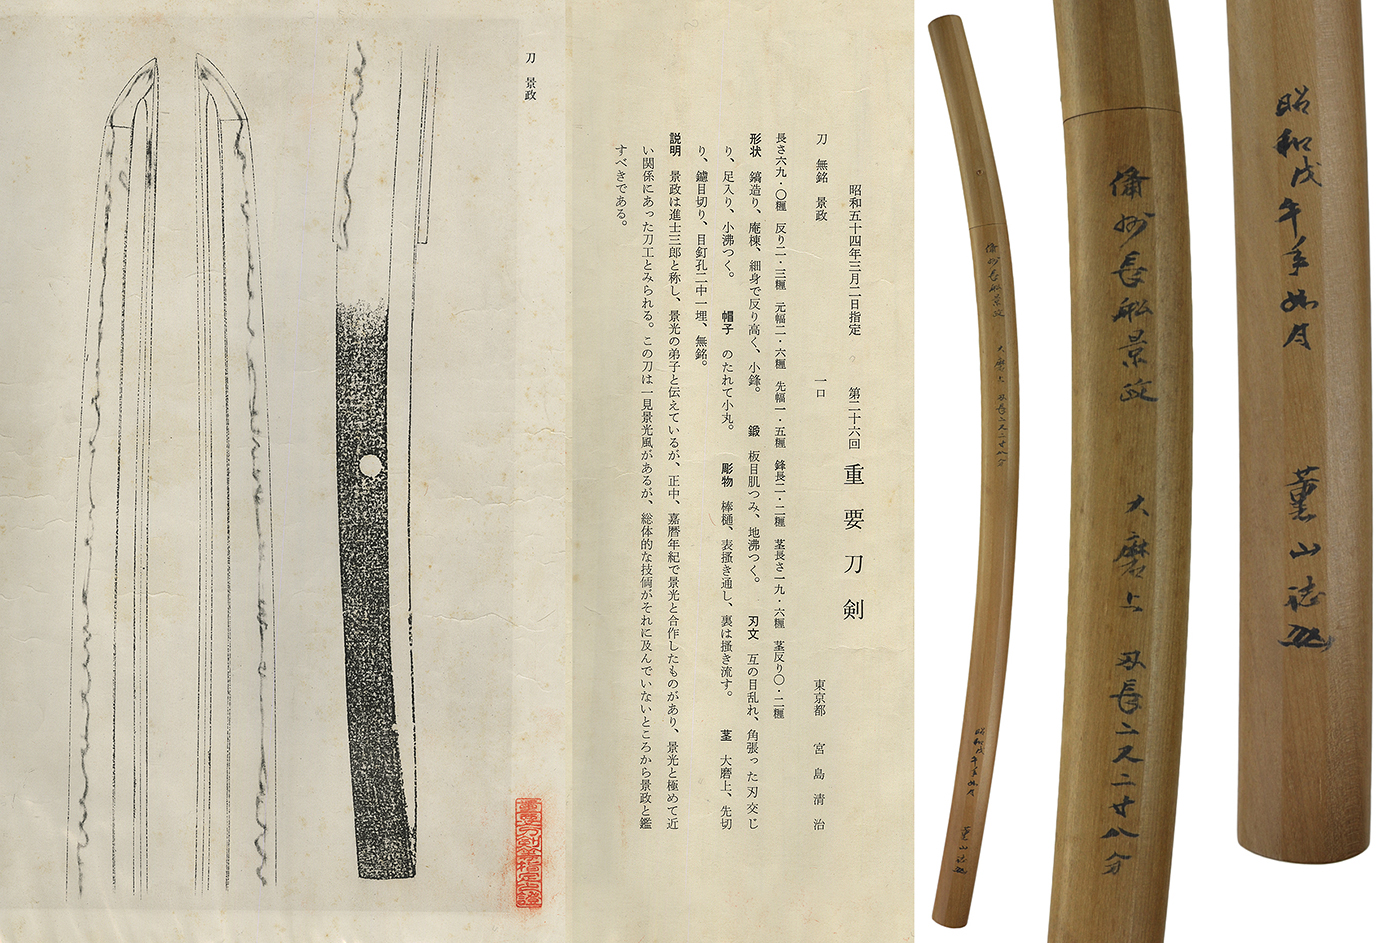 刀 景政
昭和五十四年三月二日指定 第二十六回 重要刀剣
刀 無銘 景政 一口 東京都 宮島清治
長さ六九・〇糎 反り二・三糎 元幅二・六糎 先幅一・五糎 鋒長二・二糎 茎長さ一九・六糎 茎反り〇・二糎
形状 鎬造り、庵棟、細身で反り高く、小鋒。 鍛 板目肌つみ、地沸つく。 刃文 互の目乱れ、角張った刃交じ
り、足入り、小沸つく。 帽子 のたれて小丸。 彫物 棒樋、表掻き通し、裏は掻き流す。 茎 大磨上、先切
り、鑢目切り、目釘孔二中一埋、無銘。
説明 景政は進士三郎と称し、景光の弟子と伝えているが、正中、嘉暦年紀で景光と合作したものがあり、景光と極めて近
い関係にあった刀工とみられる。この刀は一見景光風があるが、総体的な技倆がそれに及んでいないところから景政と鑑
すべきである。
備州長船景政 大磨上 刃長二尺二寸八分
昭和戊午年如月 薫山誌
備州長船景政 大磨上 刃長二尺二寸八分
昭和戊午年如月 薫山誌